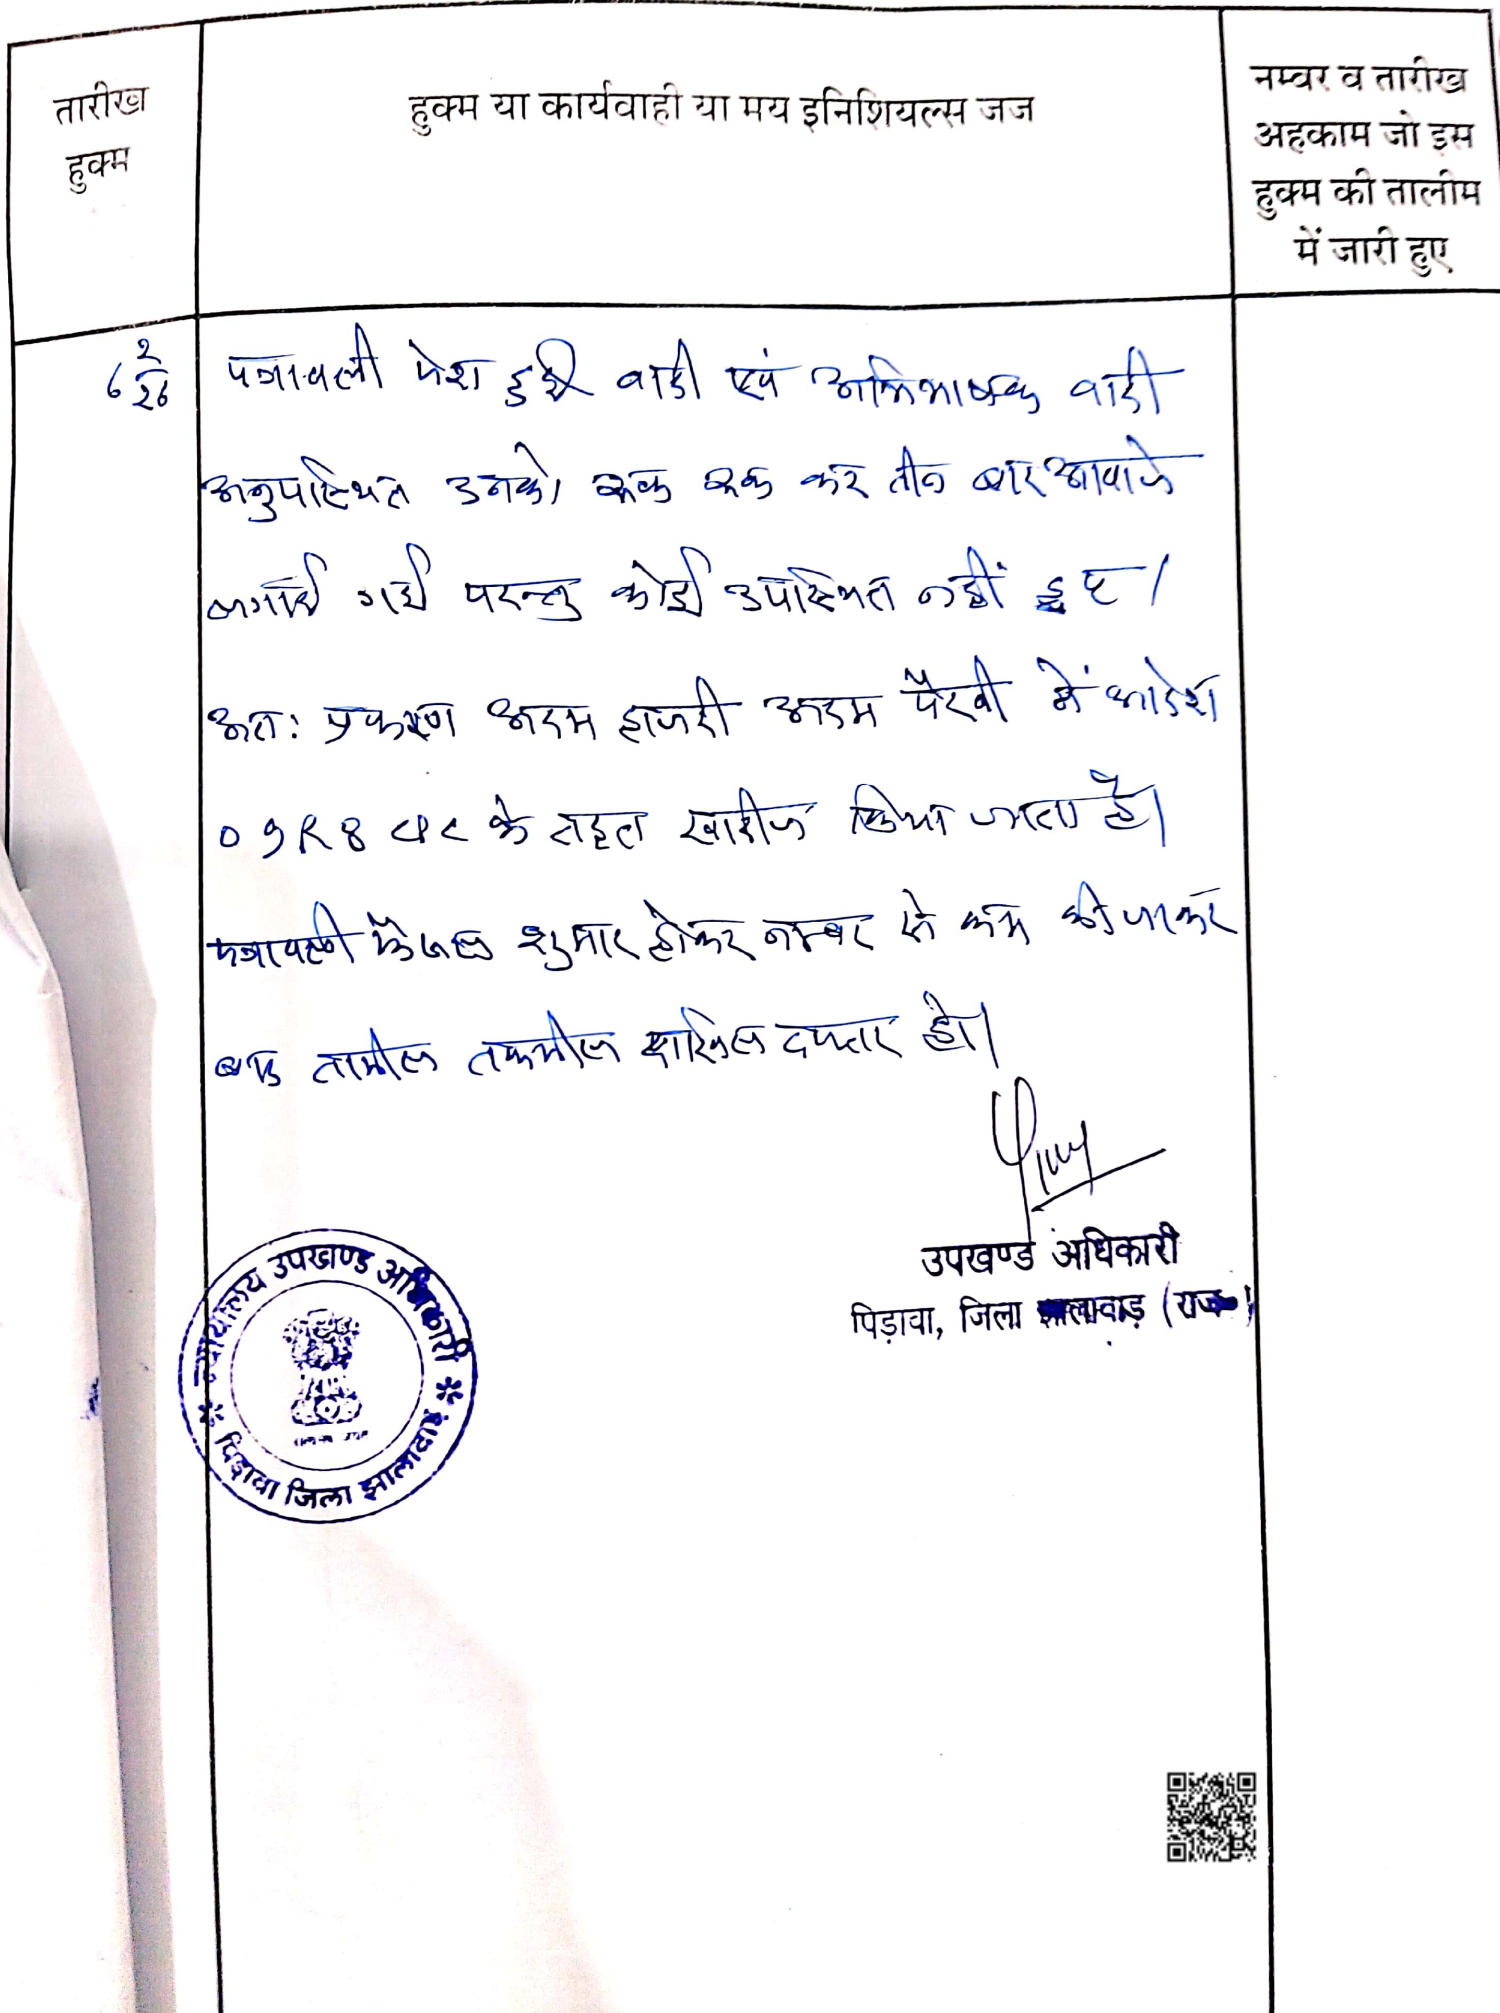 तारीख
हुक्म
हुक्म या कार्यवाही या मय इनिशियल्स जज
नम्वर व तारीख
अहकाम जो इस
हुक्म की तालीम
में जारी हुए
6 2/26
पत्रावली पेश हुई वादी एवं अभिभाषक वादी
अनुपस्थित उनको रूक रूक कर तीन बार आवाजे
लगाई गई परन्तु कोई उपस्थित नहीं हुए।
अत: प्रकरण अदम हाजरी अदम पैरवी में आदेश
09R8 CPC के तहत खारीज किया जाता है।
पत्रावली फैसल शुमार होकर नम्बर से कम की जाकर
बाद तामील तकमील दाखिल दफ्तर हो।
उपखण्ड अधिकारी
पिड़ावा, जिला झालावाड़ (राज०)
न्यायालय उपखण्ड अधिकारी
* पिड़ावा जिला झालावाड़ *